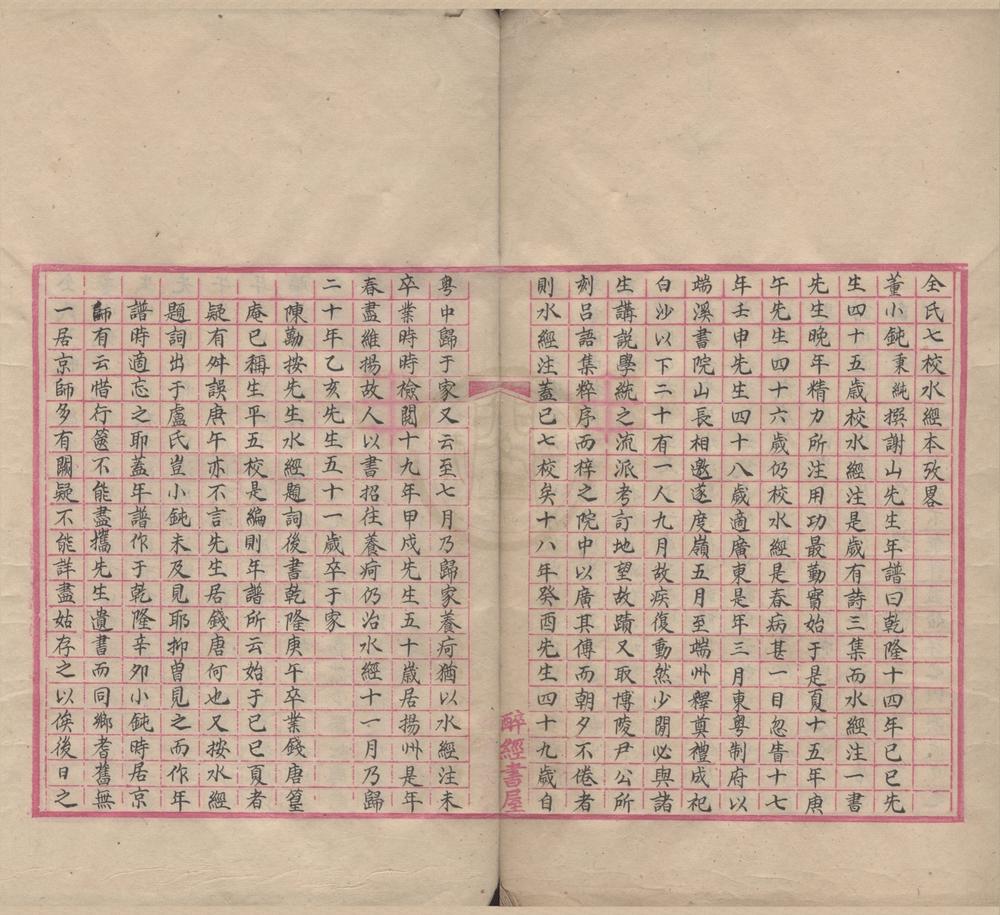 全氏七校水經本攷畧
董小鈍秉純撰謝山先生年譜曰乾隆十四年己巳先
生四十五歲校水經注是歲有詩三集而水經注一書
先生晚年精力所注用功最勤實始于是夏十五年庚
午先生四十六歲仍校水經是春病甚一目忽眚十七
年壬申先生四十八歲適廣東是年三月東粵制府以
端溪書院山長相邀遂度嶺五月至端州釋奠禮成祀
白沙以下二十有一人九月故疾復動然少閒必與諸
生講說學統之流派考訂地望故蹟又取博陵尹公所
刻呂語集粹序而梓之院中以廣其傳而朝夕不倦者
則水經注蓋已七校矣十八年癸酉先生四十九歲自
醉經書屋
粵中歸于家又云至七月乃歸家養疴猶以水經注未
卒業時時檢閱十九年甲戌先生五十歲居揚州是年
春盡維揚故人以書招往養疴仍治水經十一月乃歸
二十年乙亥先生五十一歲卒于家
陳勱按先生水經題詞後書乾隆庚午卒業錢唐篁
庵已稱生平五校是編則年譜所云始于己巳夏者
疑有舛誤庚午亦不言先生居錢唐何也又按水經
題詞出于盧氏豈小鈍未及見耶抑曾見之而作年
譜時適忘之耶蓋年譜作于乾隆辛卯小鈍時居京
師有云惜行篋不能盡攜先生遺書而同鄉耆舊無
一居京師多有闕疑不能詳盡姑存之以俟後日之